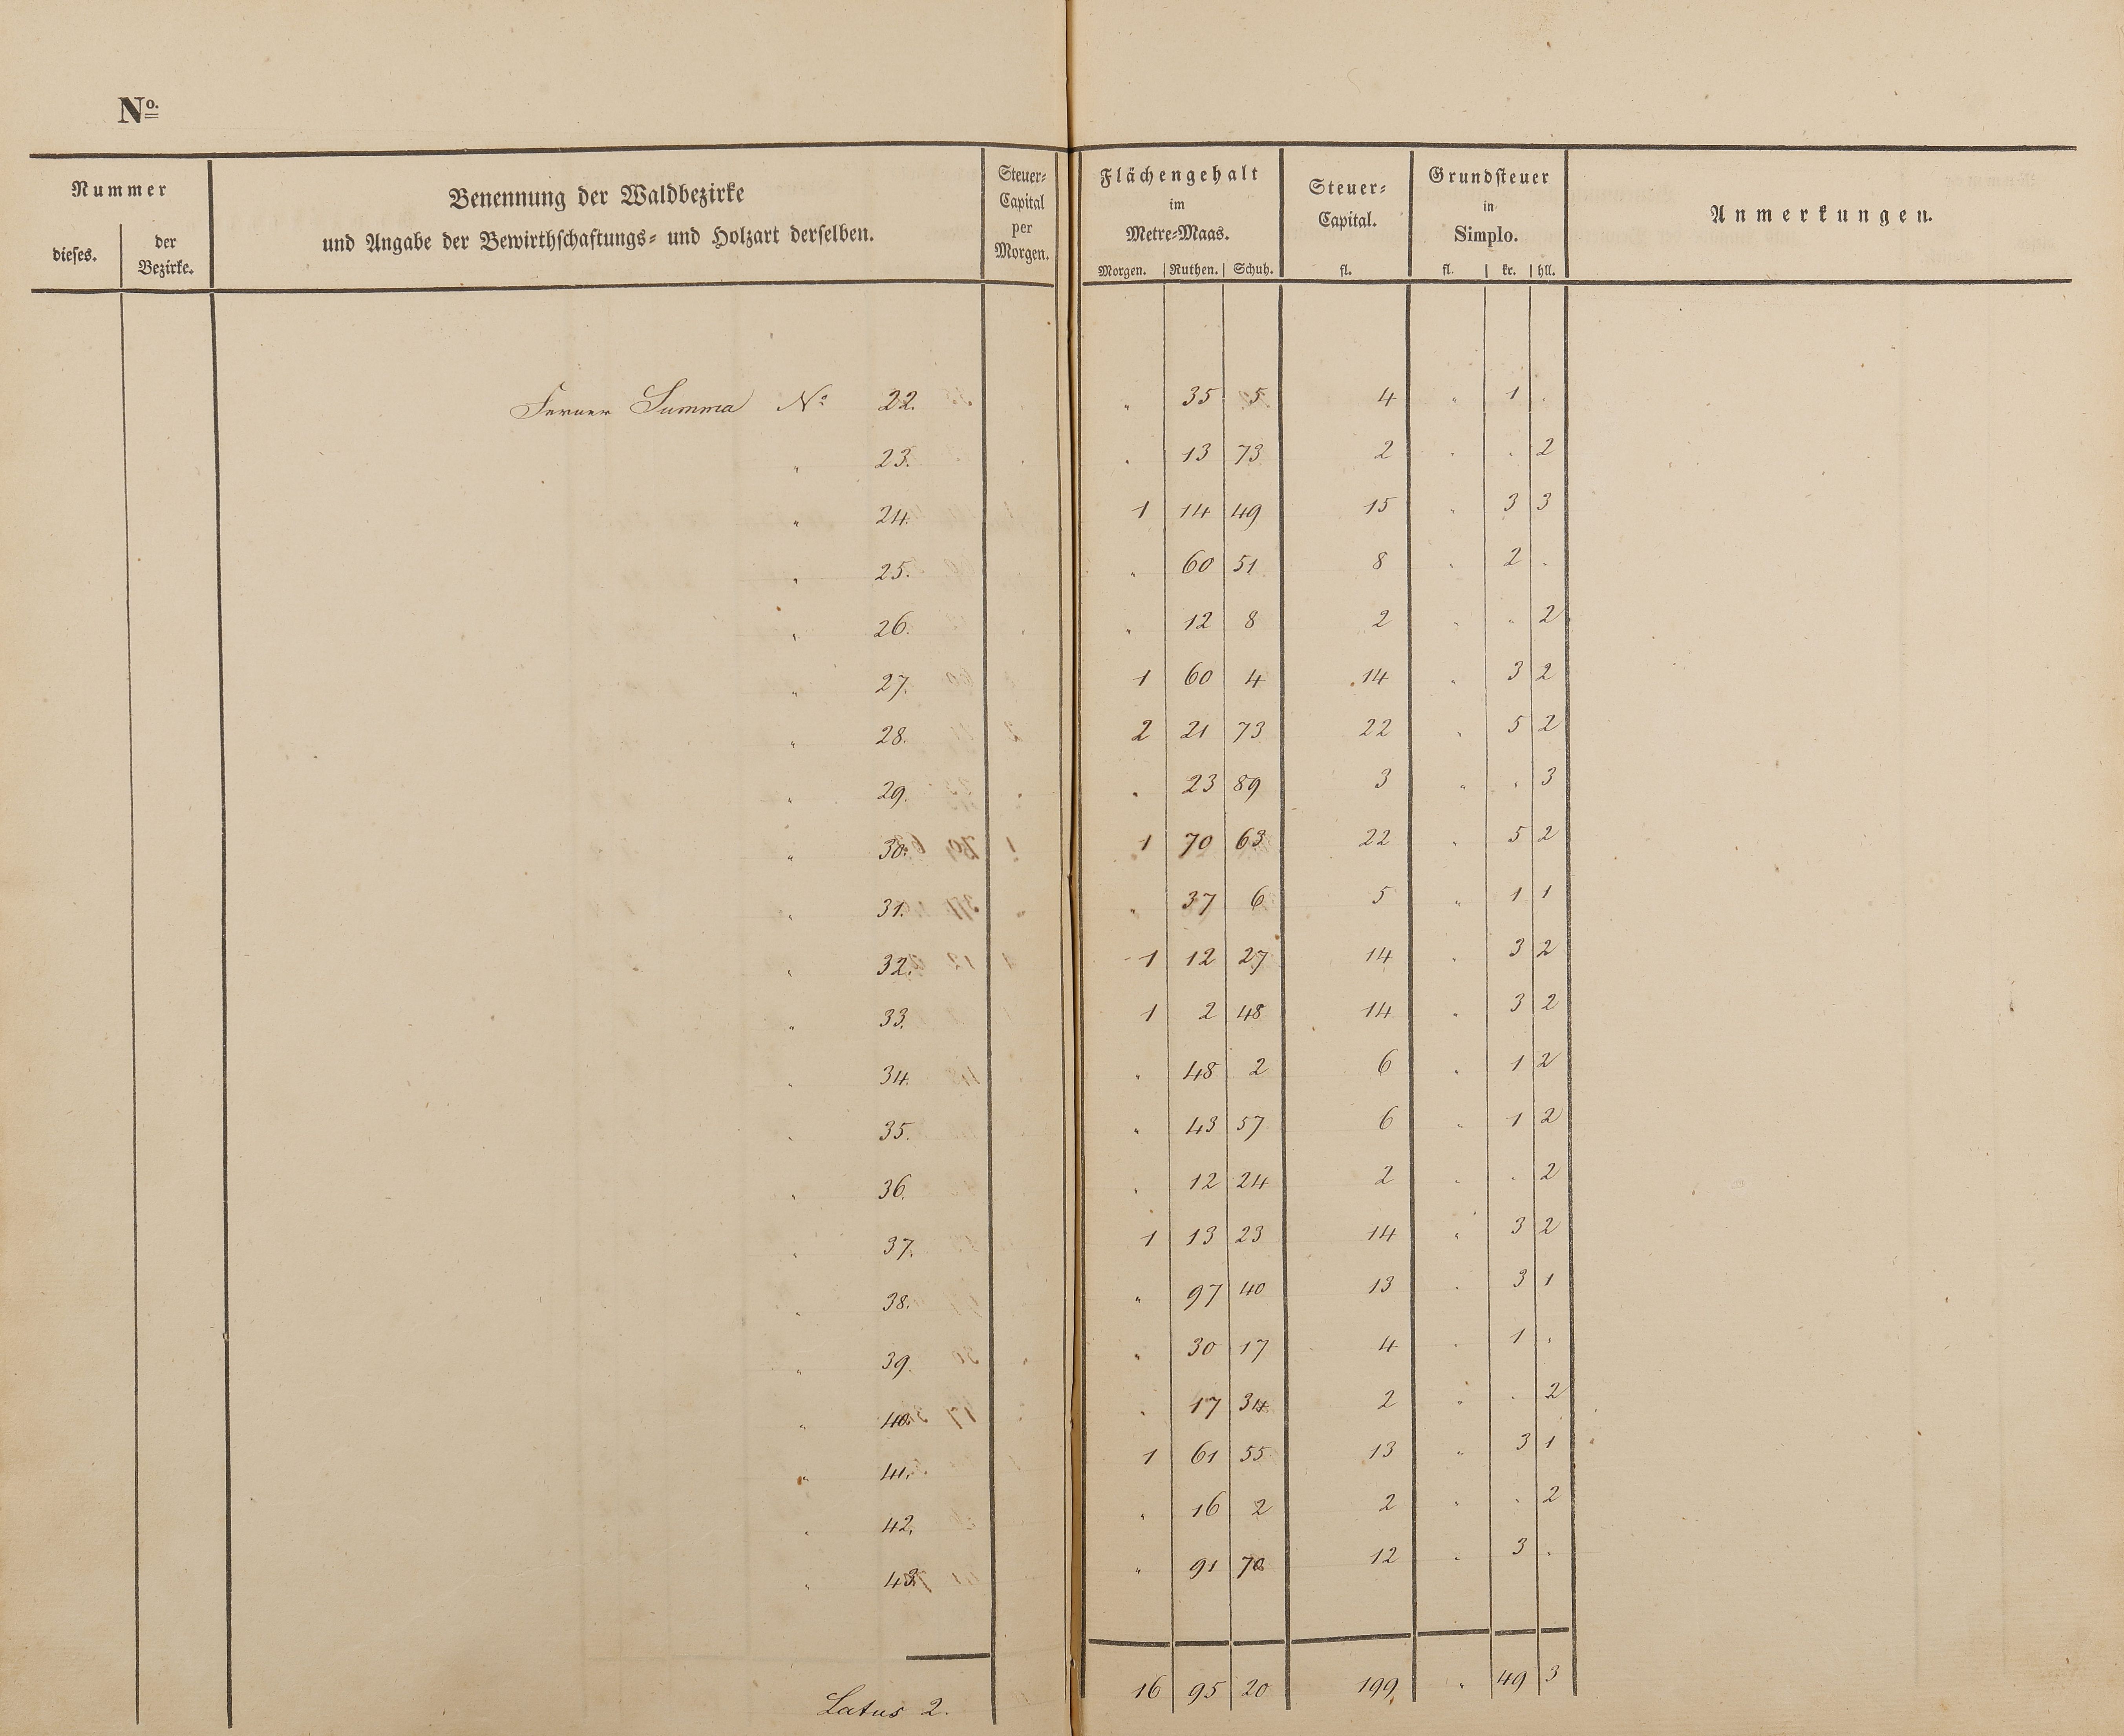 No.
Nummer
dieses.
der
Bezirke.
Benennung der Waldbezirke
und Angabe der Bewirthschaftungs- und Holzart derselben.
Steuer-
Capital
per
Morgen.
Flächengehalt
im
Metre-Maas.
Morgen. Ruthen. Schuh.
Steuer-
Capital.
fl.
Grundsteuer
in
Simplo.
fl. kr. hll.
Anmerkungen.
Ferner Summa No 22. " 35 5 4 " 1 .
" 23. . 13 73 2 . . 2
" 24. 1 14 49 15 . 3 3
" 25. " 60 51 8 . 2 .
" 26. " 12 8 2 " " 2
" 27. 1 60 4 14 " 3 2
" 28. 2 21 73 22 " 5 2
" 29. " 23 89 3 " " 3
" 30. 1 70 63 22 " 5 2
" 31. " 37 6 5 " 1 1
" 32. 1 12 27 14 " 3 2
" 33. 1 2 48 14 " 3 2
" 34. " 48 2 6 " 1 2
" 35. " 43 57 6 " 1 2
" 36. " 12 24 2 . . 2
" 37. 1 13 23 14 " 3 2
" 38. " 97 40 13 . 3 1
" 39. " 30 17 4 . 1 .
" 40. . 17 34 2 " . 2
" 41. 1 61 55 13 " 3 1
" 42. " 16 2 2 " . 2
" 43. " 91 70 12 " 3 .
Latus 2. 16 95 20 199 " 49 3